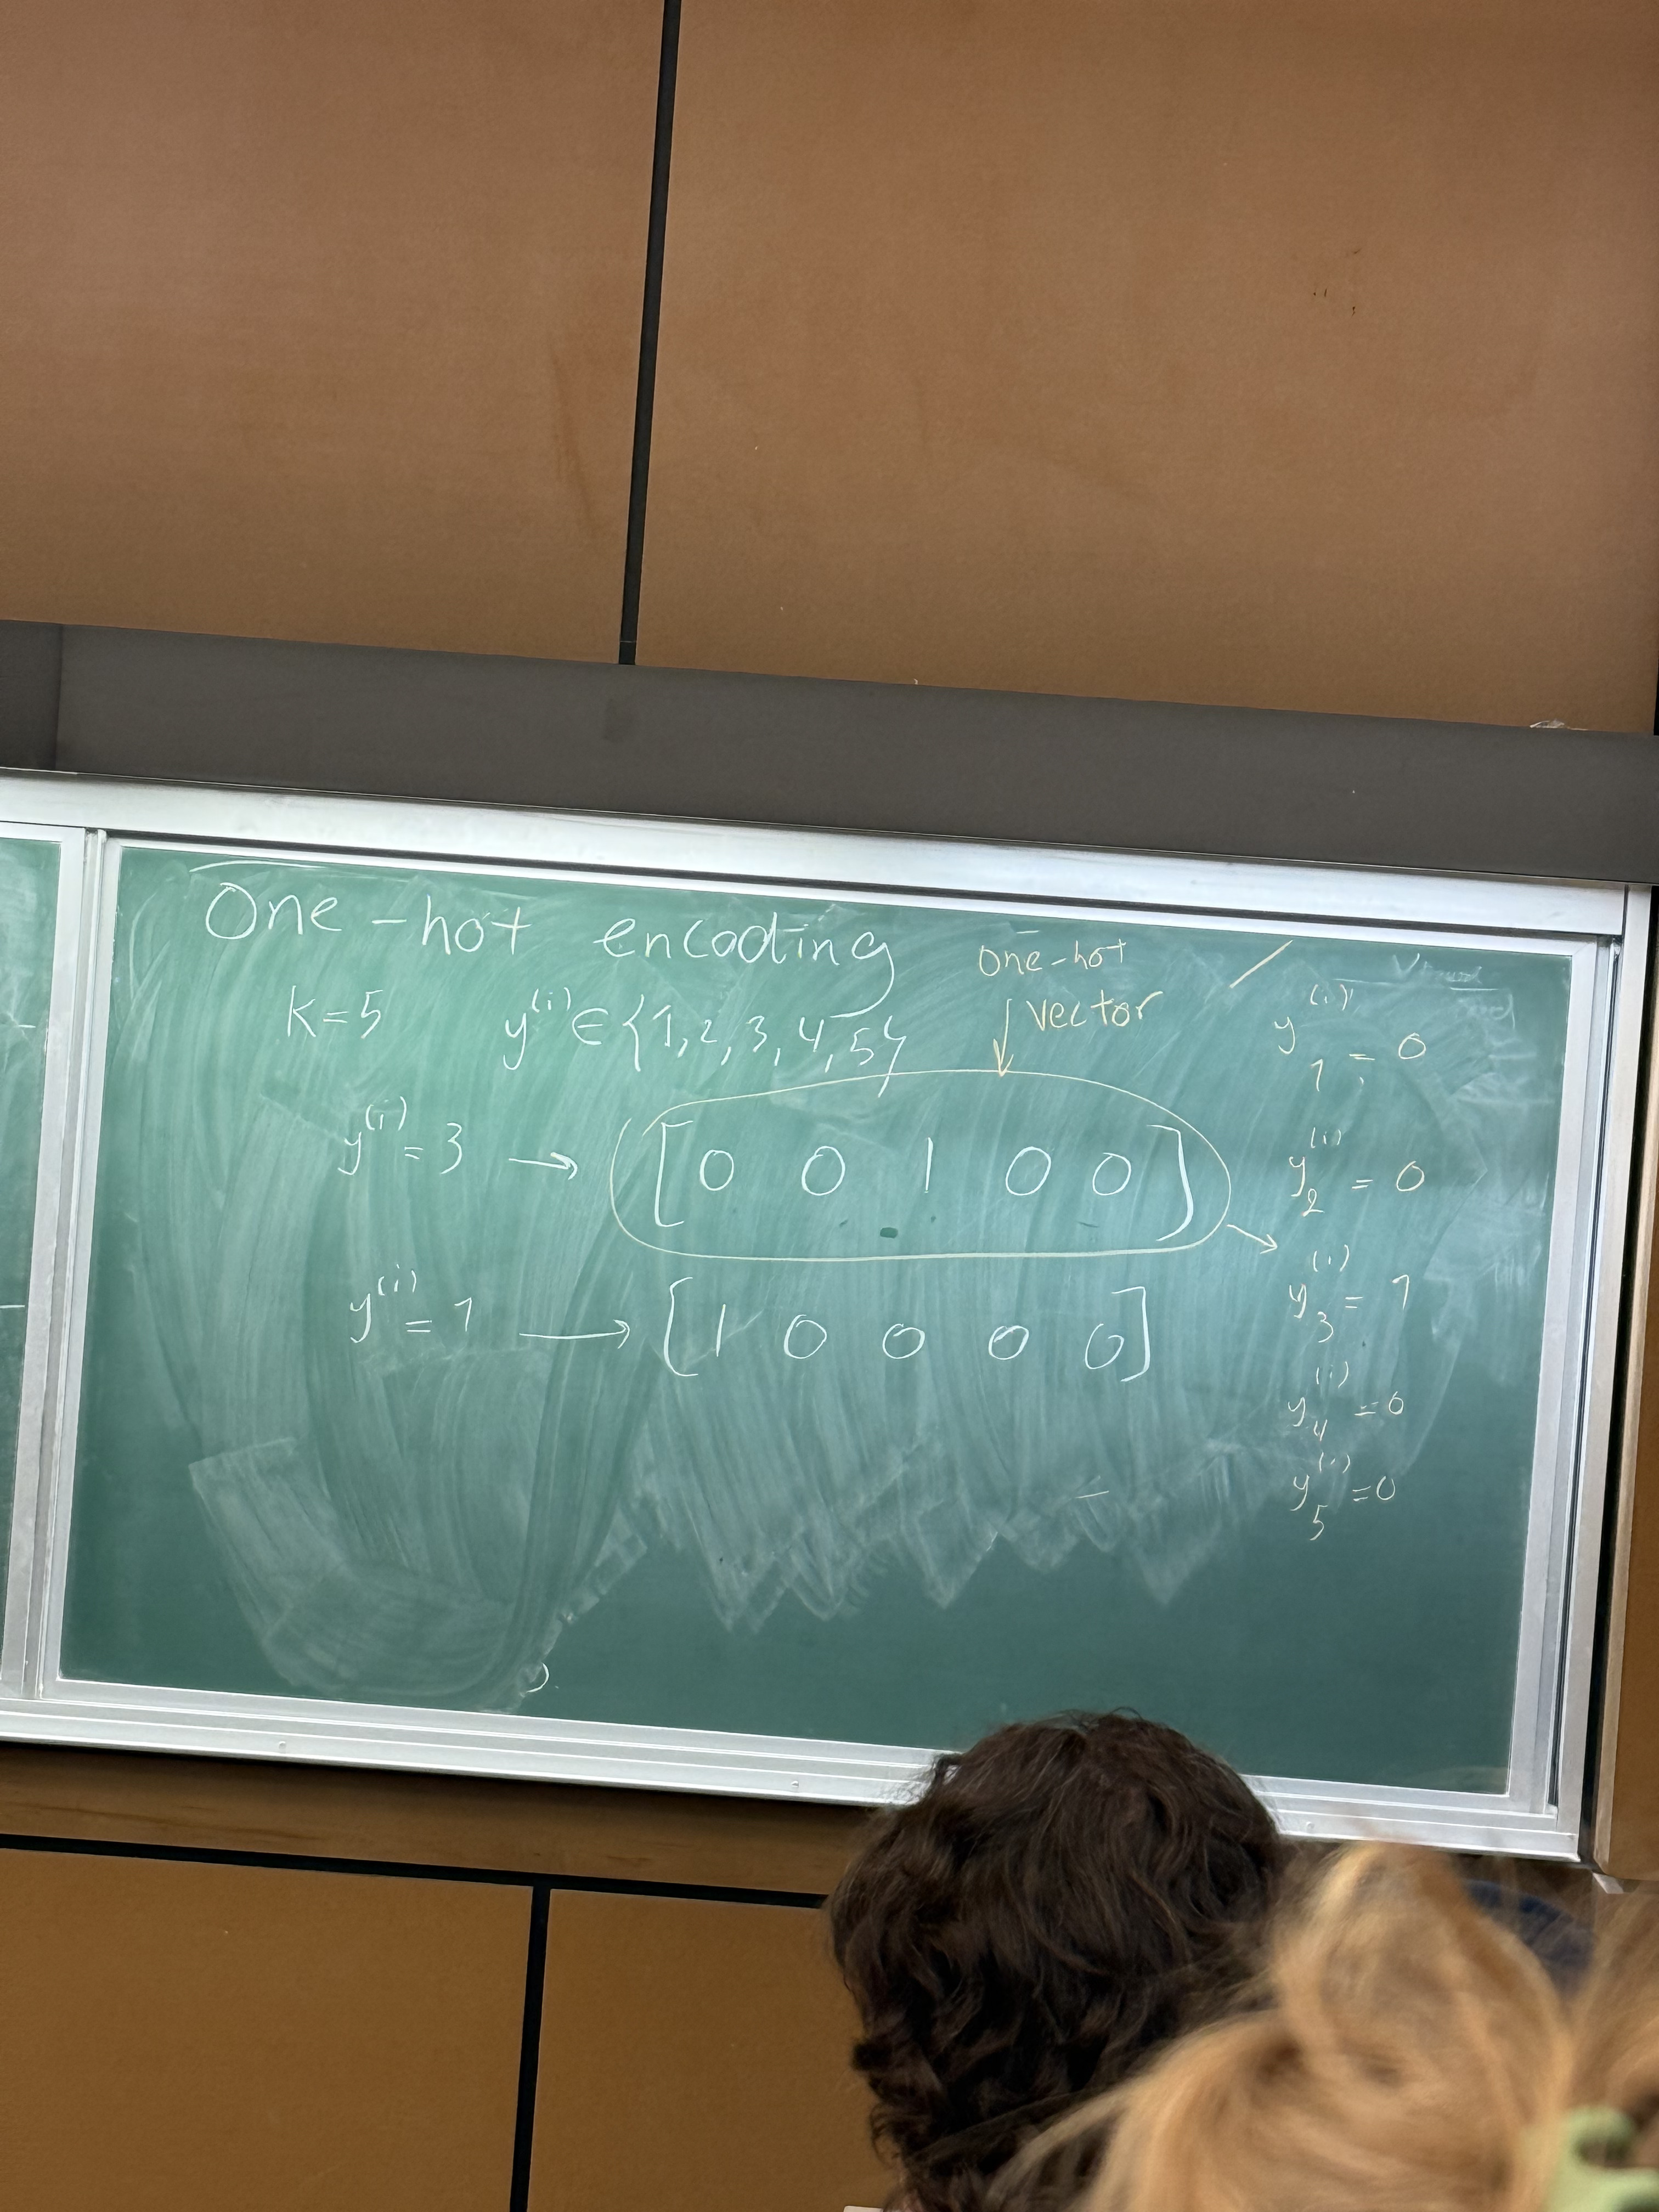 One-hot encoding
K=5 y^(i) ∈ {1, 2, 3, 4, 5}
one-hot
vector
y^(i) = 3 → [0 0 1 0 0]
y^(i) = 1 → [1 0 0 0 0]
y_1^(i) = 0
y_2^(i) = 0
y_3^(i) = 1
y_4^(i) = 0
y_5^(i) = 0